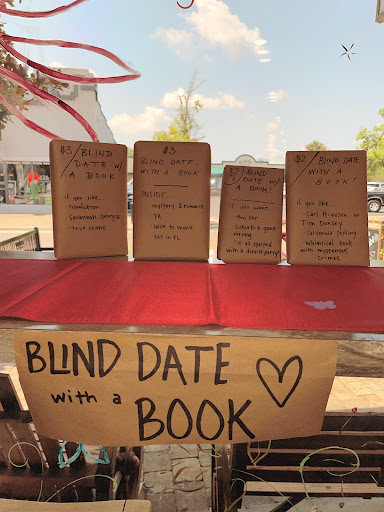 $3/BLIND
DATE w/
A BOOK
if you like:
nonfiction
Savannah, Georgia
true crime
$3
BLIND DATE
WITH A BOOK
INSIDE:
mystery & romance
YA
book to movie
set in FL
$7/BLIND
DATE w/
A BOOK!
if you want:
thriller
suburbia gone
wrong
"it all started
with a dinner party"
$2
BLIND DATE
WITH A
BOOK!
if you like
Carl Hiassen or
Tim Dorsey
California setting
whimsical book
with mysterious
crimes
BLIND DATE
with a
BOOK